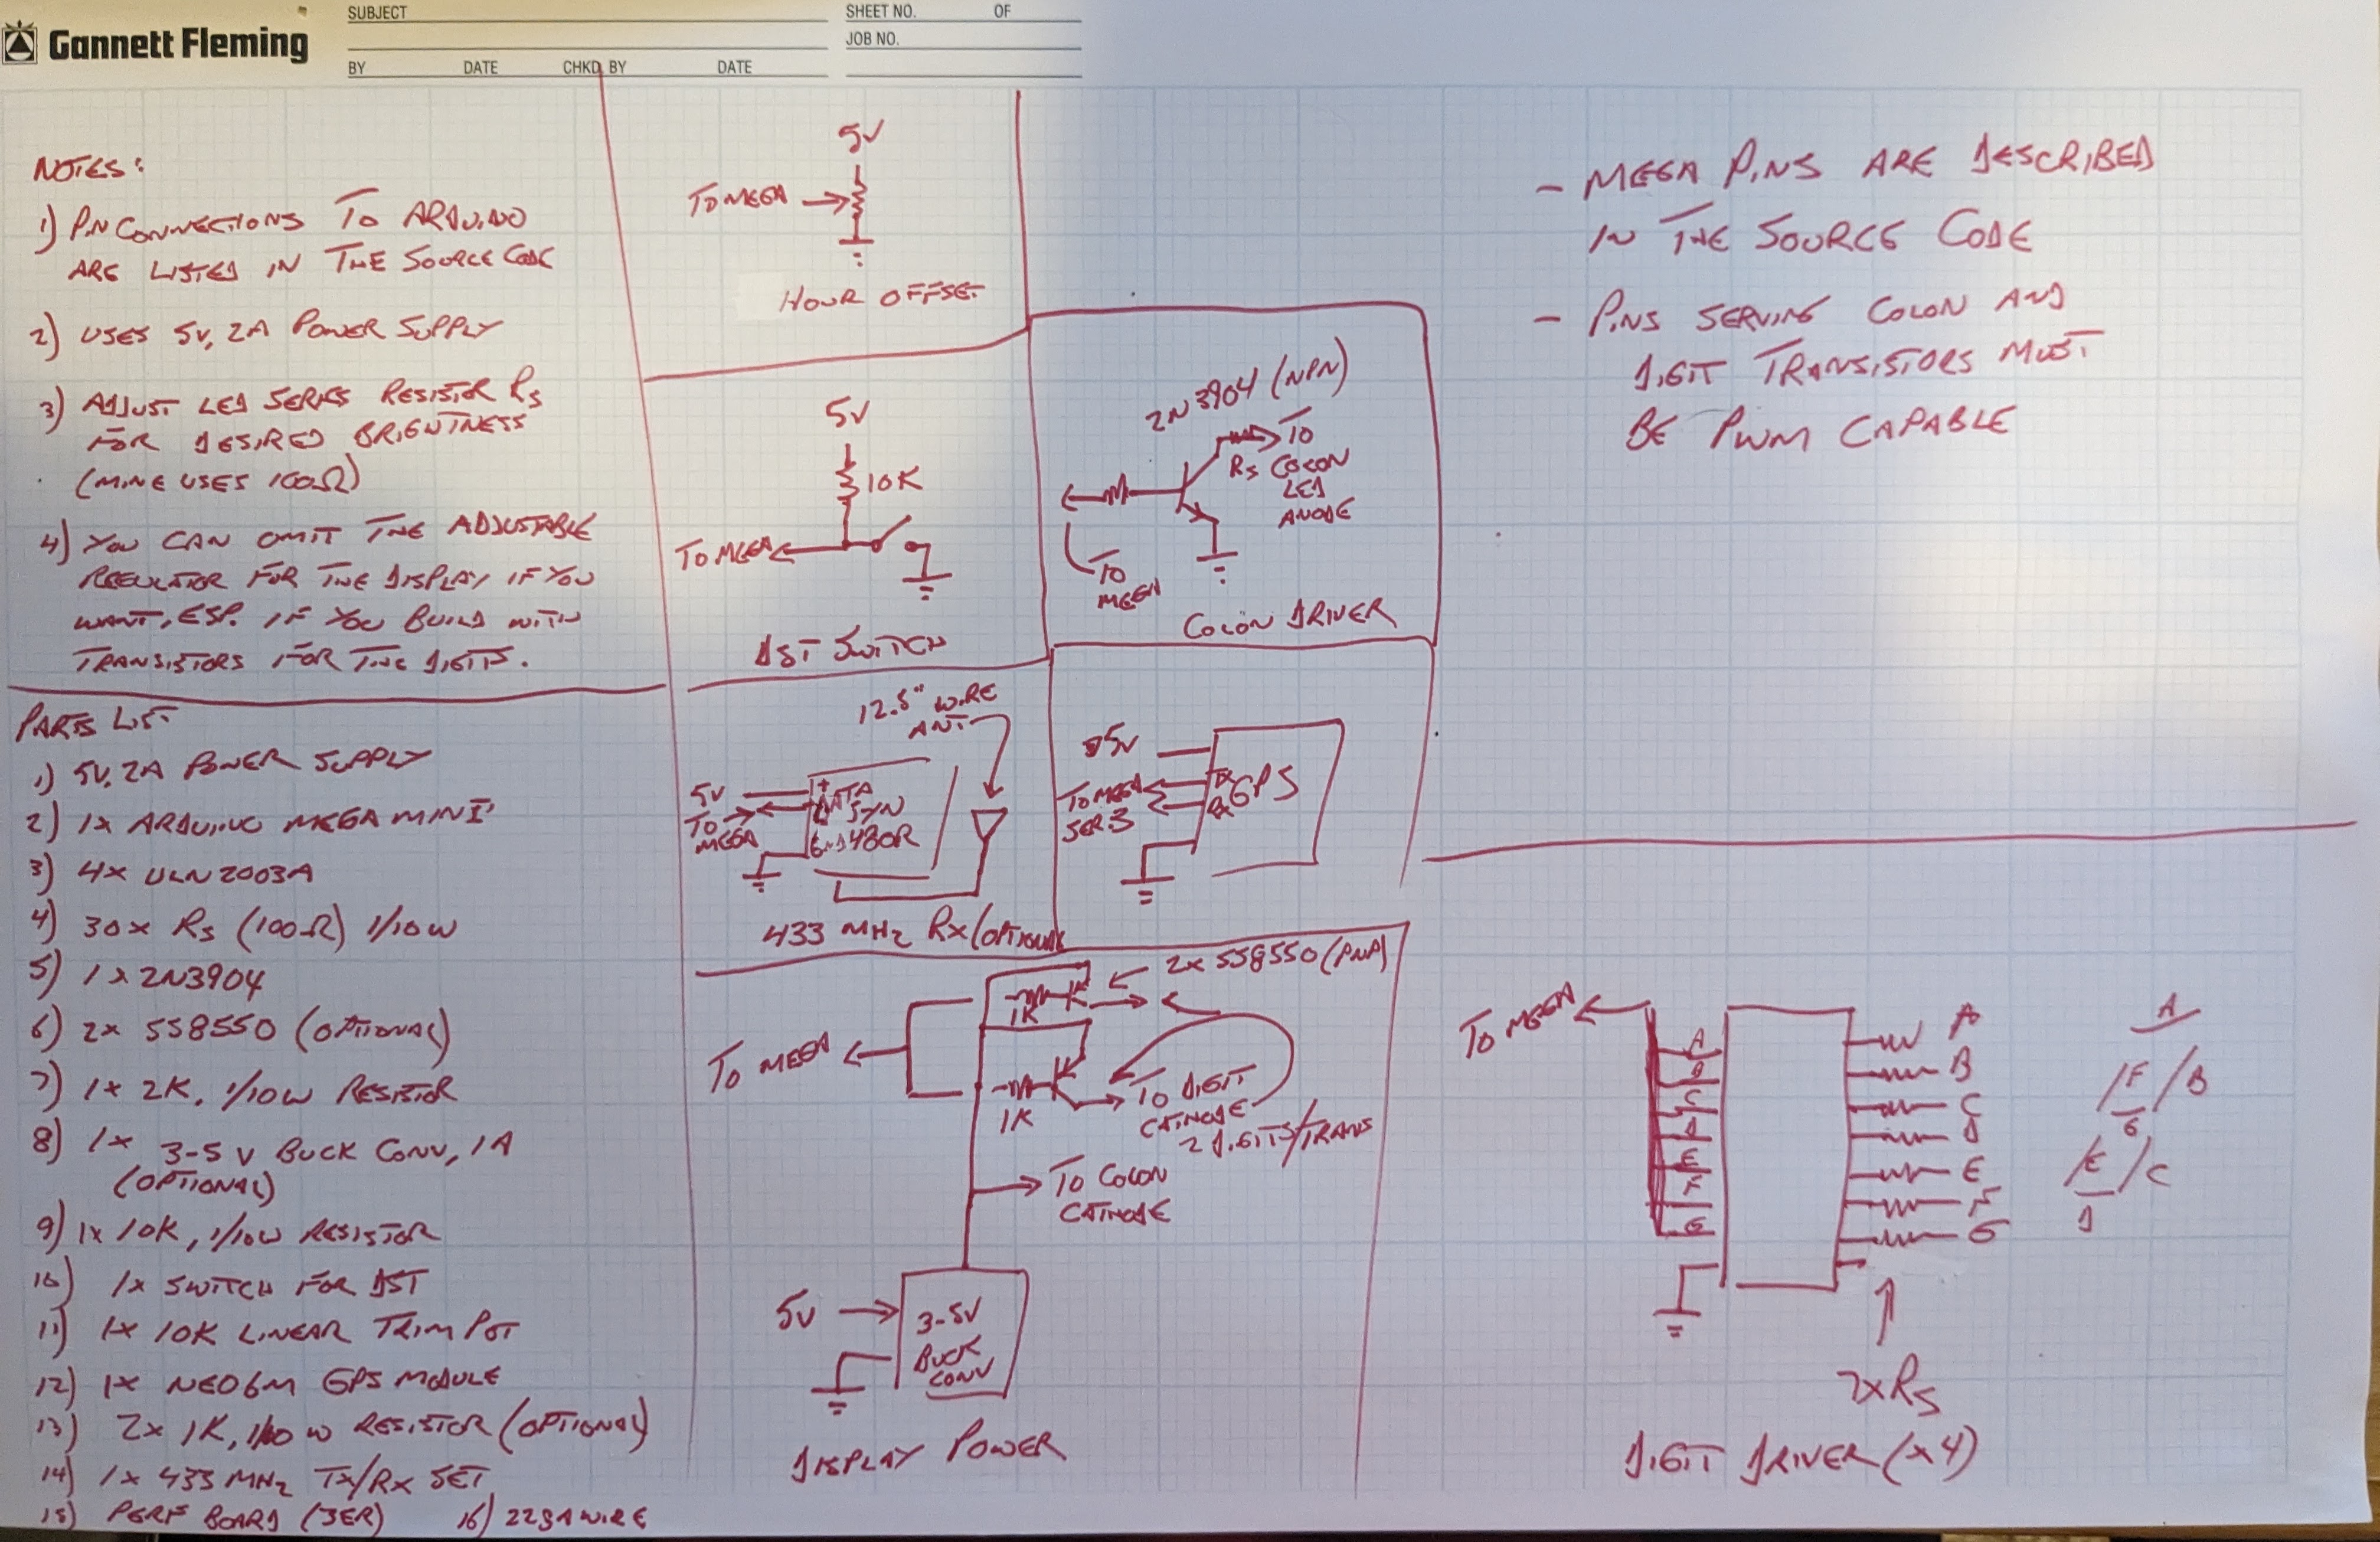 Gannett Fleming
SUBJECT
SHEET NO. OF
JOB NO.
BY DATE CHKD. BY DATE
NOTES:
1) PIN CONNECTIONS TO ARDUINO
ARE LISTED IN THE SOURCE CODE
2) USES 5V, 2A POWER SUPPLY
3) ADJUST LED SERIES RESISTOR RS
FOR DESIRED BRIGHTNESS
(MINE USES 100Ω)
4) YOU CAN OMIT THE ADJUSTABLE
REGULATOR FOR THE DISPLAY IF YOU
WANT, ESP. IF YOU BUILD WITH
TRANSISTORS FOR THE DIGITS.
PARTS LIST
1) 5V, 2A POWER SUPPLY
2) 1x ARDUINO MEGA MINI
3) 4x ULN2003A
4) 30x RS (100Ω) 1/10W
5) 1x 2N3904
6) 2x SS8550 (OPTIONAL)
7) 1x 2K, 1/10W RESISTOR
8) 1x 3-5V BUCK CONV, 1A
(OPTIONAL)
9) 1x 10K, 1/10W RESISTOR
10) 1x SWITCH FOR DST
11) 1x 10K LINEAR TRIM POT
12) 1x NEO6M GPS MODULE
13) 2x 1K, 1/10W RESISTOR (OPTIONAL)
14) 1x 433 MHz TX/RX SET
15) PERF BOARD 16) 22GA WIRE
5V
TO MEGA
HOUR OFFSET
5V
10K
TO MEGA
DST SWITCH
2N3904 (NPN)
TO
RS COLON
LED
ANODE
TO
MEGA
COLON DRIVER
12.5" WIRE
ANT
5V
+
DATA
TO
MEGA
SYN
GND 480R
433 MHz RX (OPTIONAL
5V
TX
GPS
TO MEGA
SER.3
RX
2x SS8550 (PNP)
1K
TO MEGA
1K
TO DIGIT
CATHODE
2 DIGITS/TRANS
TO COLON
CATHODE
5V
3-5V
BUCK
CONV
DISPLAY POWER
- MEGA PINS ARE DESCRIBED
IN THE SOURCE CODE
- PINS SERVING COLON AND
DIGIT TRANSISTORS MUST
BE PWM CAPABLE
TO MEGA
A
B
C
D
E
F
G
A
B
C
D
E
F
G
A
F B
G
E C
D
7x RS
DIGIT DRIVER (x4)